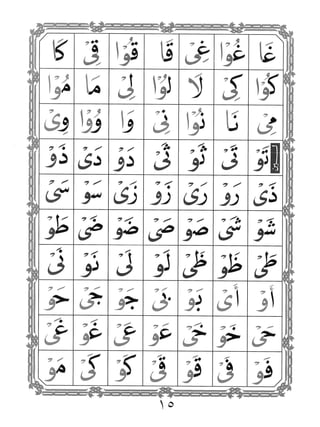 غَا غُوْا غِىْ قَا قُوْا قِىْ كَا
كُوْا كِىْ لَا لُوْا لِىْ مَا مُوْا
مِىْ نَا نُوْا نِىْ وَا وُوْا وِىْ
تَوْ تَىْ ثَوْ ثَىْ دَوْ دَىْ ذَوْ
ذَىْ رَوْ رَىْ زَوْ زَىْ سَوْ سَىْ
شَوْ شَىْ صَوْ صَىْ ضَوْ ضَىْ طَوْ
طَىْ ظَوْ ظَىْ لَوْ لَىْ نَوْ نَىْ
أَوْ أَىْ بَوْ بَىْ جَوْ جَىْ حَوْ
حَىْ خَوْ خَىْ عَوْ عَىْ غَوْ غَىْ
فَوْ فَىْ قَوْ قَىْ كَوْ كَىْ مَوْ
١٥